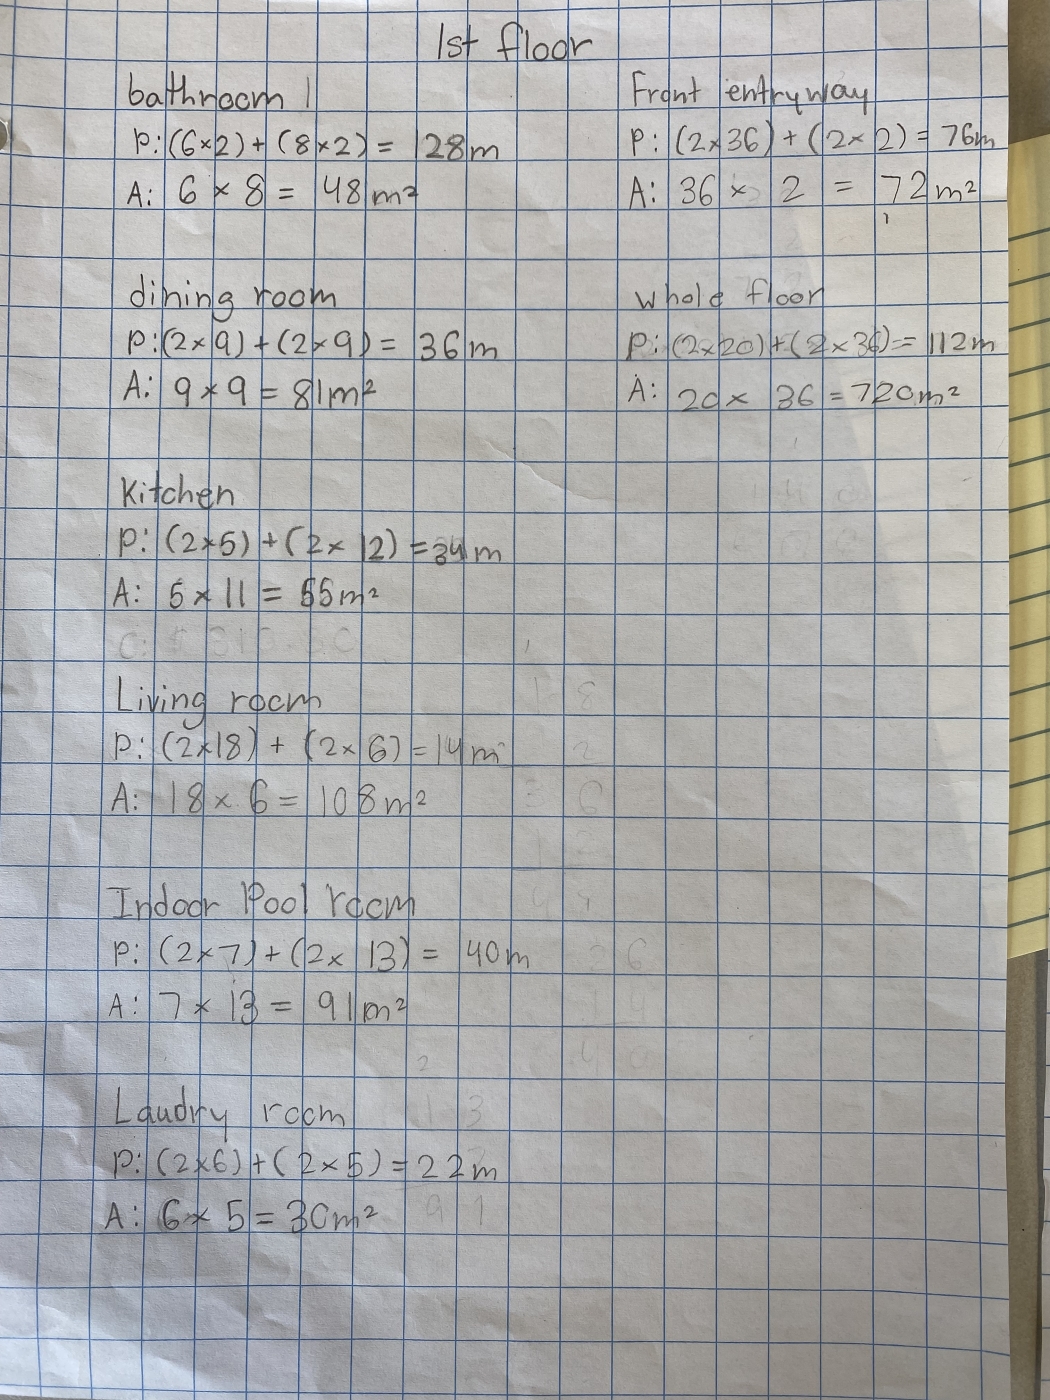 1st floor
bathroom 1
P: (6×2) + (8×2) = 28m
A: 6 × 8 = 48m²
dining room
P: (2×9) + (2×9) = 36m
A: 9 × 9 = 81m²
Kitchen
P: (2×5) + (2× 12) = 34m
A: 5 × 11 = 55m²
Living room
P: (2×18) + (2×6) = 14m
A: 18 × 6 = 108m²
Indoor Pool room
P: (2×7) + (2× 13) = 40m
A: 7 × 13 = 91m²
Laudry room
P: (2×6) + (2×5) = 22m
A: 6× 5 = 30m²
Front entryway
P: (2×36) + (2×2) = 76m
A: 36 × 2 = 72m²
whole floor
P: (2×20) + (2×36) = 112m
A: 20 × 36 = 720m²